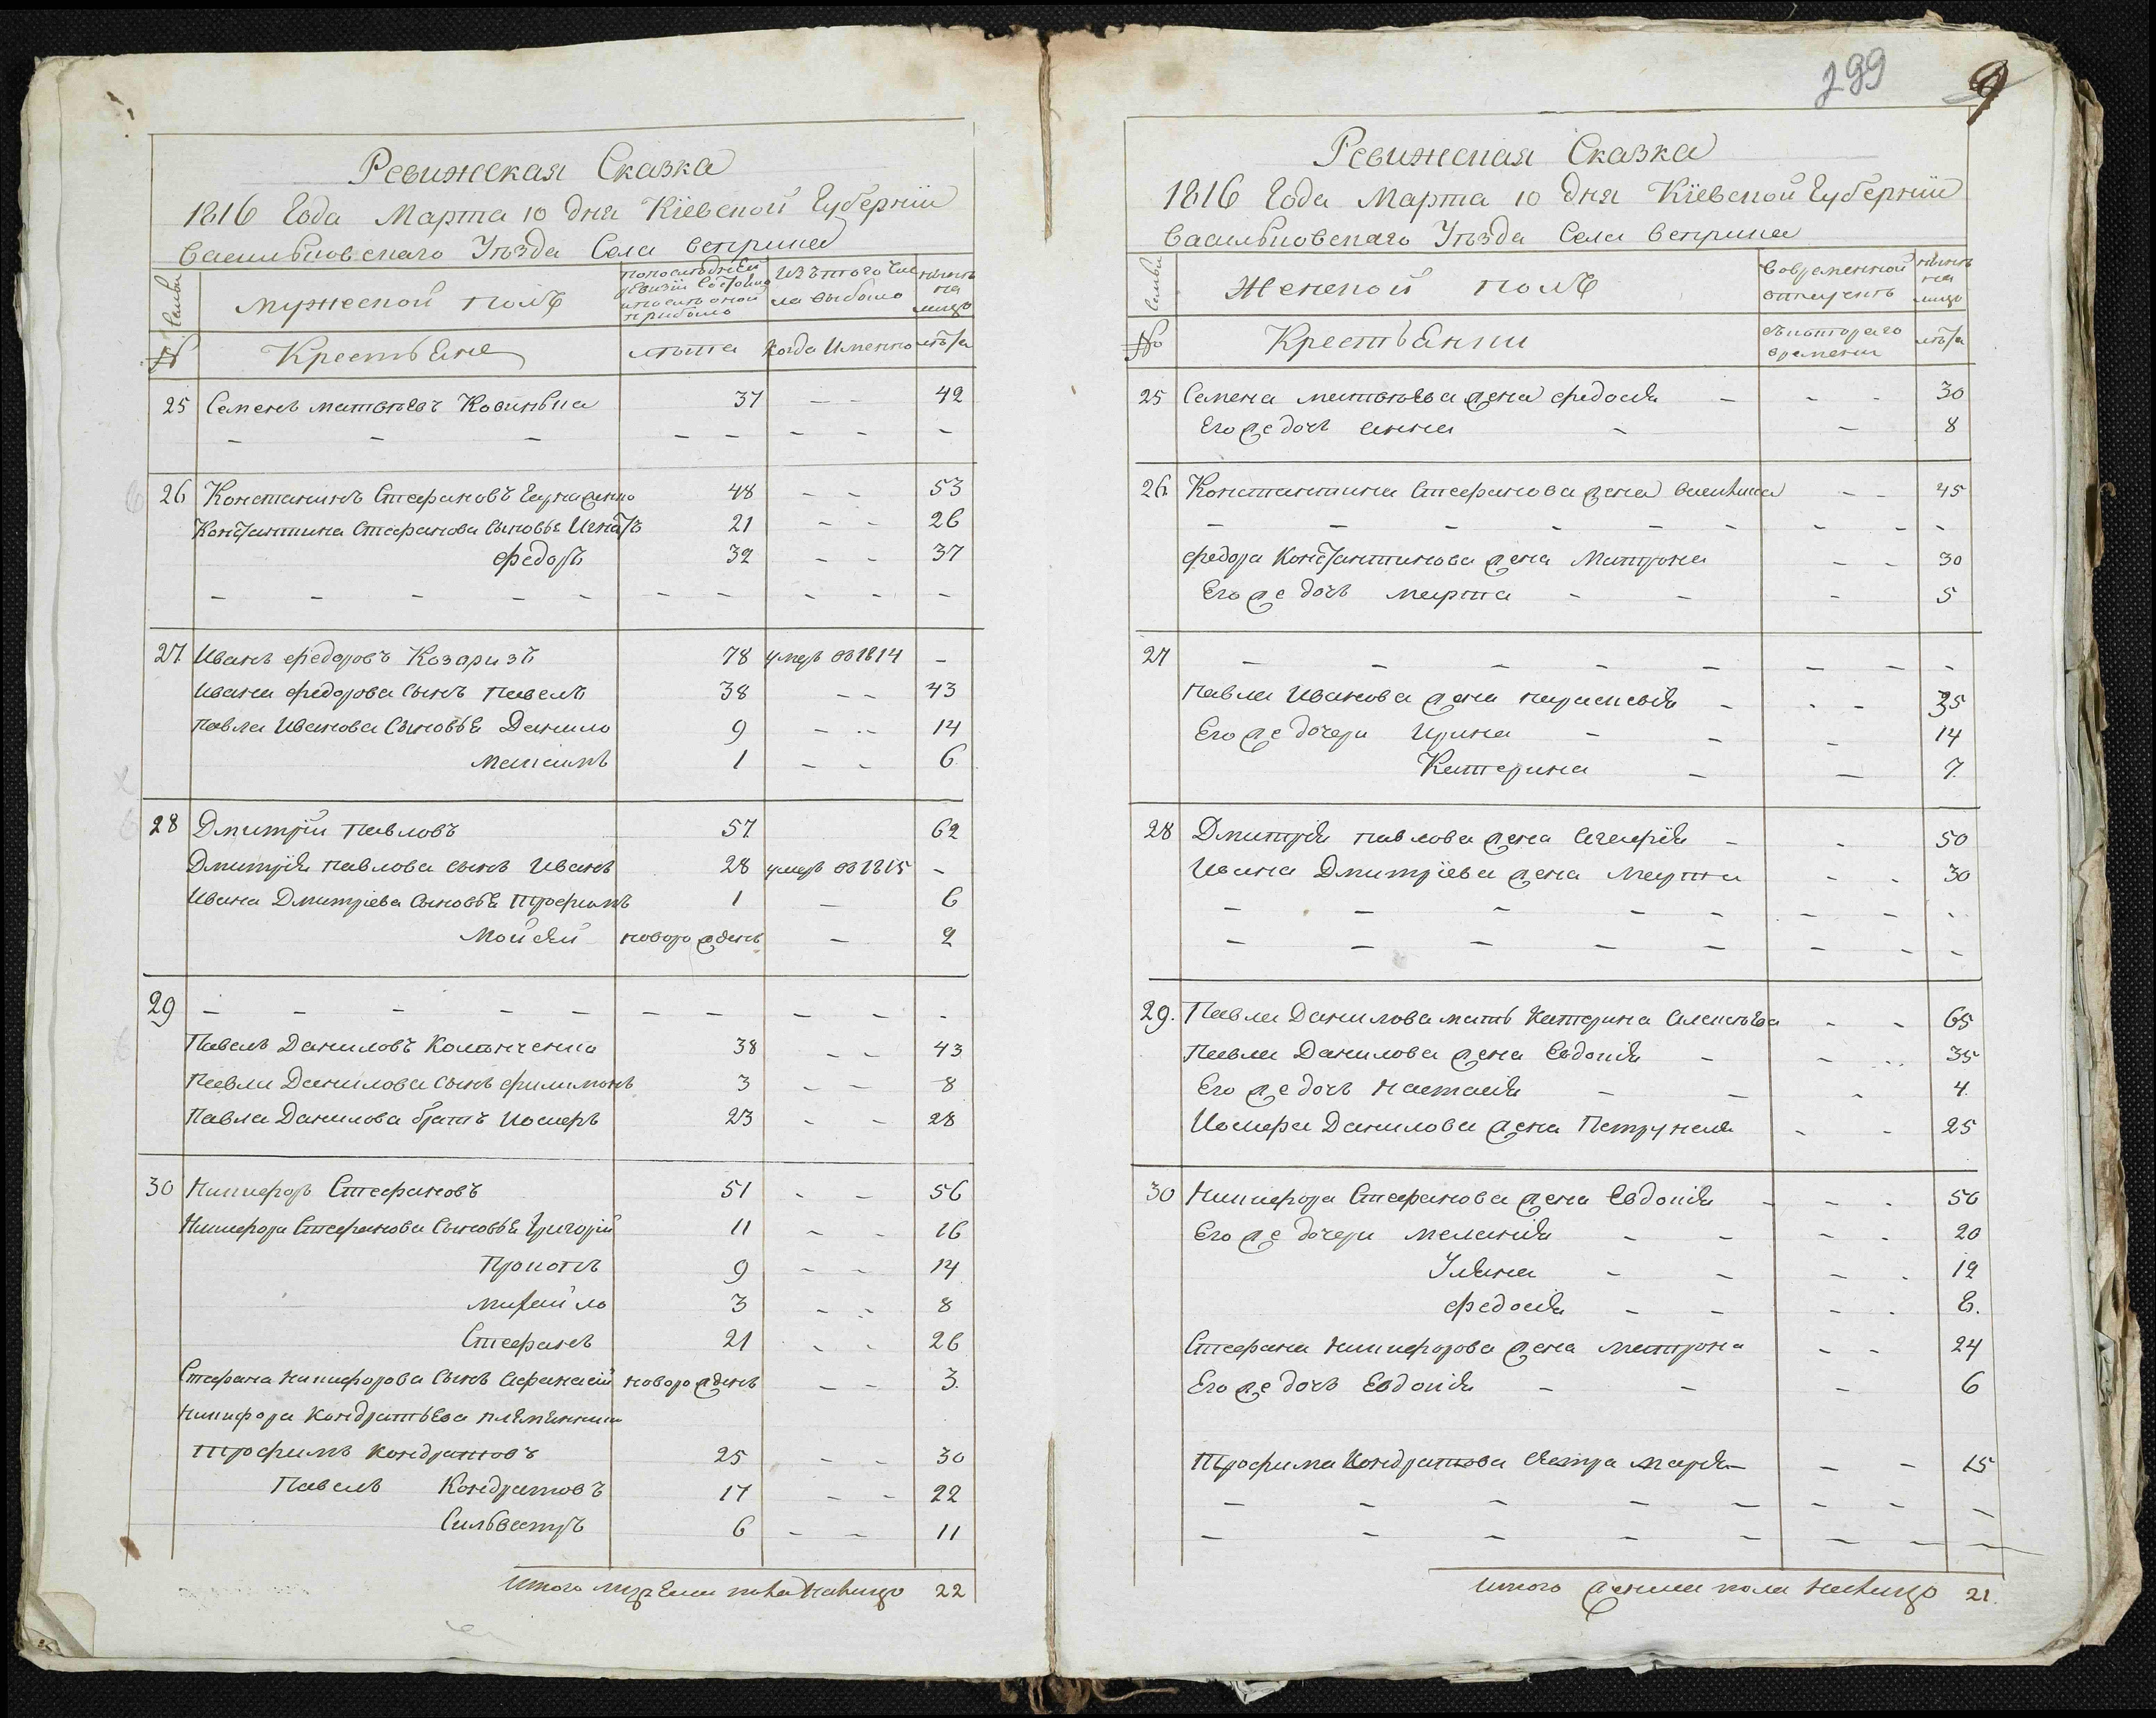 299 9
Ревижская Сказка
1816 Года Марта 10 дня Кіевской Губерніи
Васильковскаго Уѣзда Села Веприка
Семьи
мужеской полъ
по последней ревизіи состояло и после оной прибыло
Изъ того числа выбыло
нынѣ на лицо
№ Крестьяне лѣта Когда Именно лѣта
25 Семенъ матвѣевъ Ковинька 37 — — 42
26 Константинъ Стефановъ 48 — — 53
Константина Стефанова Сыновья Игнатъ 21 — — 26
федоръ 32 — — 37
27 Иванъ федоровъ Козаризъ 78 умеръ въ 1814 —
Ивана федорова Сынъ павелъ 38 — — 43
павла Иванова Сыновья Данило 9 — — 14
максимъ 1 — — 6
28 Дмитрій павловъ 57 62
Дмитрія павлова сынъ Иванъ 28 умеръ въ 1815 —
Ивана Дмитріева Сыновья Трофимъ 1 — 6
Мойсей новорожденъ — 2
29 — — — — — — — — — —
Павелъ Даниловъ Коломченко 38 — — 43
Павла Данилова сынъ филимонъ 3 — — 8
Павла Данилова братъ Иосифъ 23 — — 28
30 Никифоръ Стефановъ 51 — — 56
Никифора Стефанова Сыновья Григорій 11 — — 16
Прокопъ 9 — — 14
михайло 3 — — 8
Стефанъ 21 — — 26
Стефана никифорова Сынъ Афанасій новорожденъ — — 3
Никифора Кондратьева племянники
Трофимъ Кондратовъ 25 — — 30
Павелъ Кондратовъ 17 — — 22
Сильвестръ 6 — — 11
Итого мужеска пола налицо 22
Ревижская Сказка
1816 Года Марта 10 дня Кіевской Губерніи
Васильковскаго Уѣзда Села Веприка
Семьи
Женской полъ
Во временной отлучкѣ
нынѣ на лицо
№ Крестьянки съ котораго времени лѣта
25 Семена матвѣева жена федосія — — — 30
Его же дочь анна — — 8
26 Константина Стефанова жена василиса — — 45
федора Константинова жена Матрона — — 30
Его же дочь марта — — — 5
27 — — — — — — — —
павла Иванова жена параскевія — — — 35
Его же дочери Ирина — — — 14
Катерина — — 7
28 Дмитрія павлова жена агафія — — 50
Ивана Дмитріева жена марта — — 30
29. Павла Данилова мать Катерина алексѣева — — 65
павла Данилова жена Евдокія — — — 35
Его же дочь настасія — — — 4
Иосифа Данилова жена Петрунеля — — 25
30 Никифора Стефанова жена Евдокія — — — 50
Его же дочери меланія — — — — 20
Уляна — — — — 12
федосія — — — — 8.
Стефана никифорова жена матрона — — 24
Его же дочь Евдокія — — — 6
Трофима Кондратова сестра марія — — — 15
Итого женска пола налицо 21.